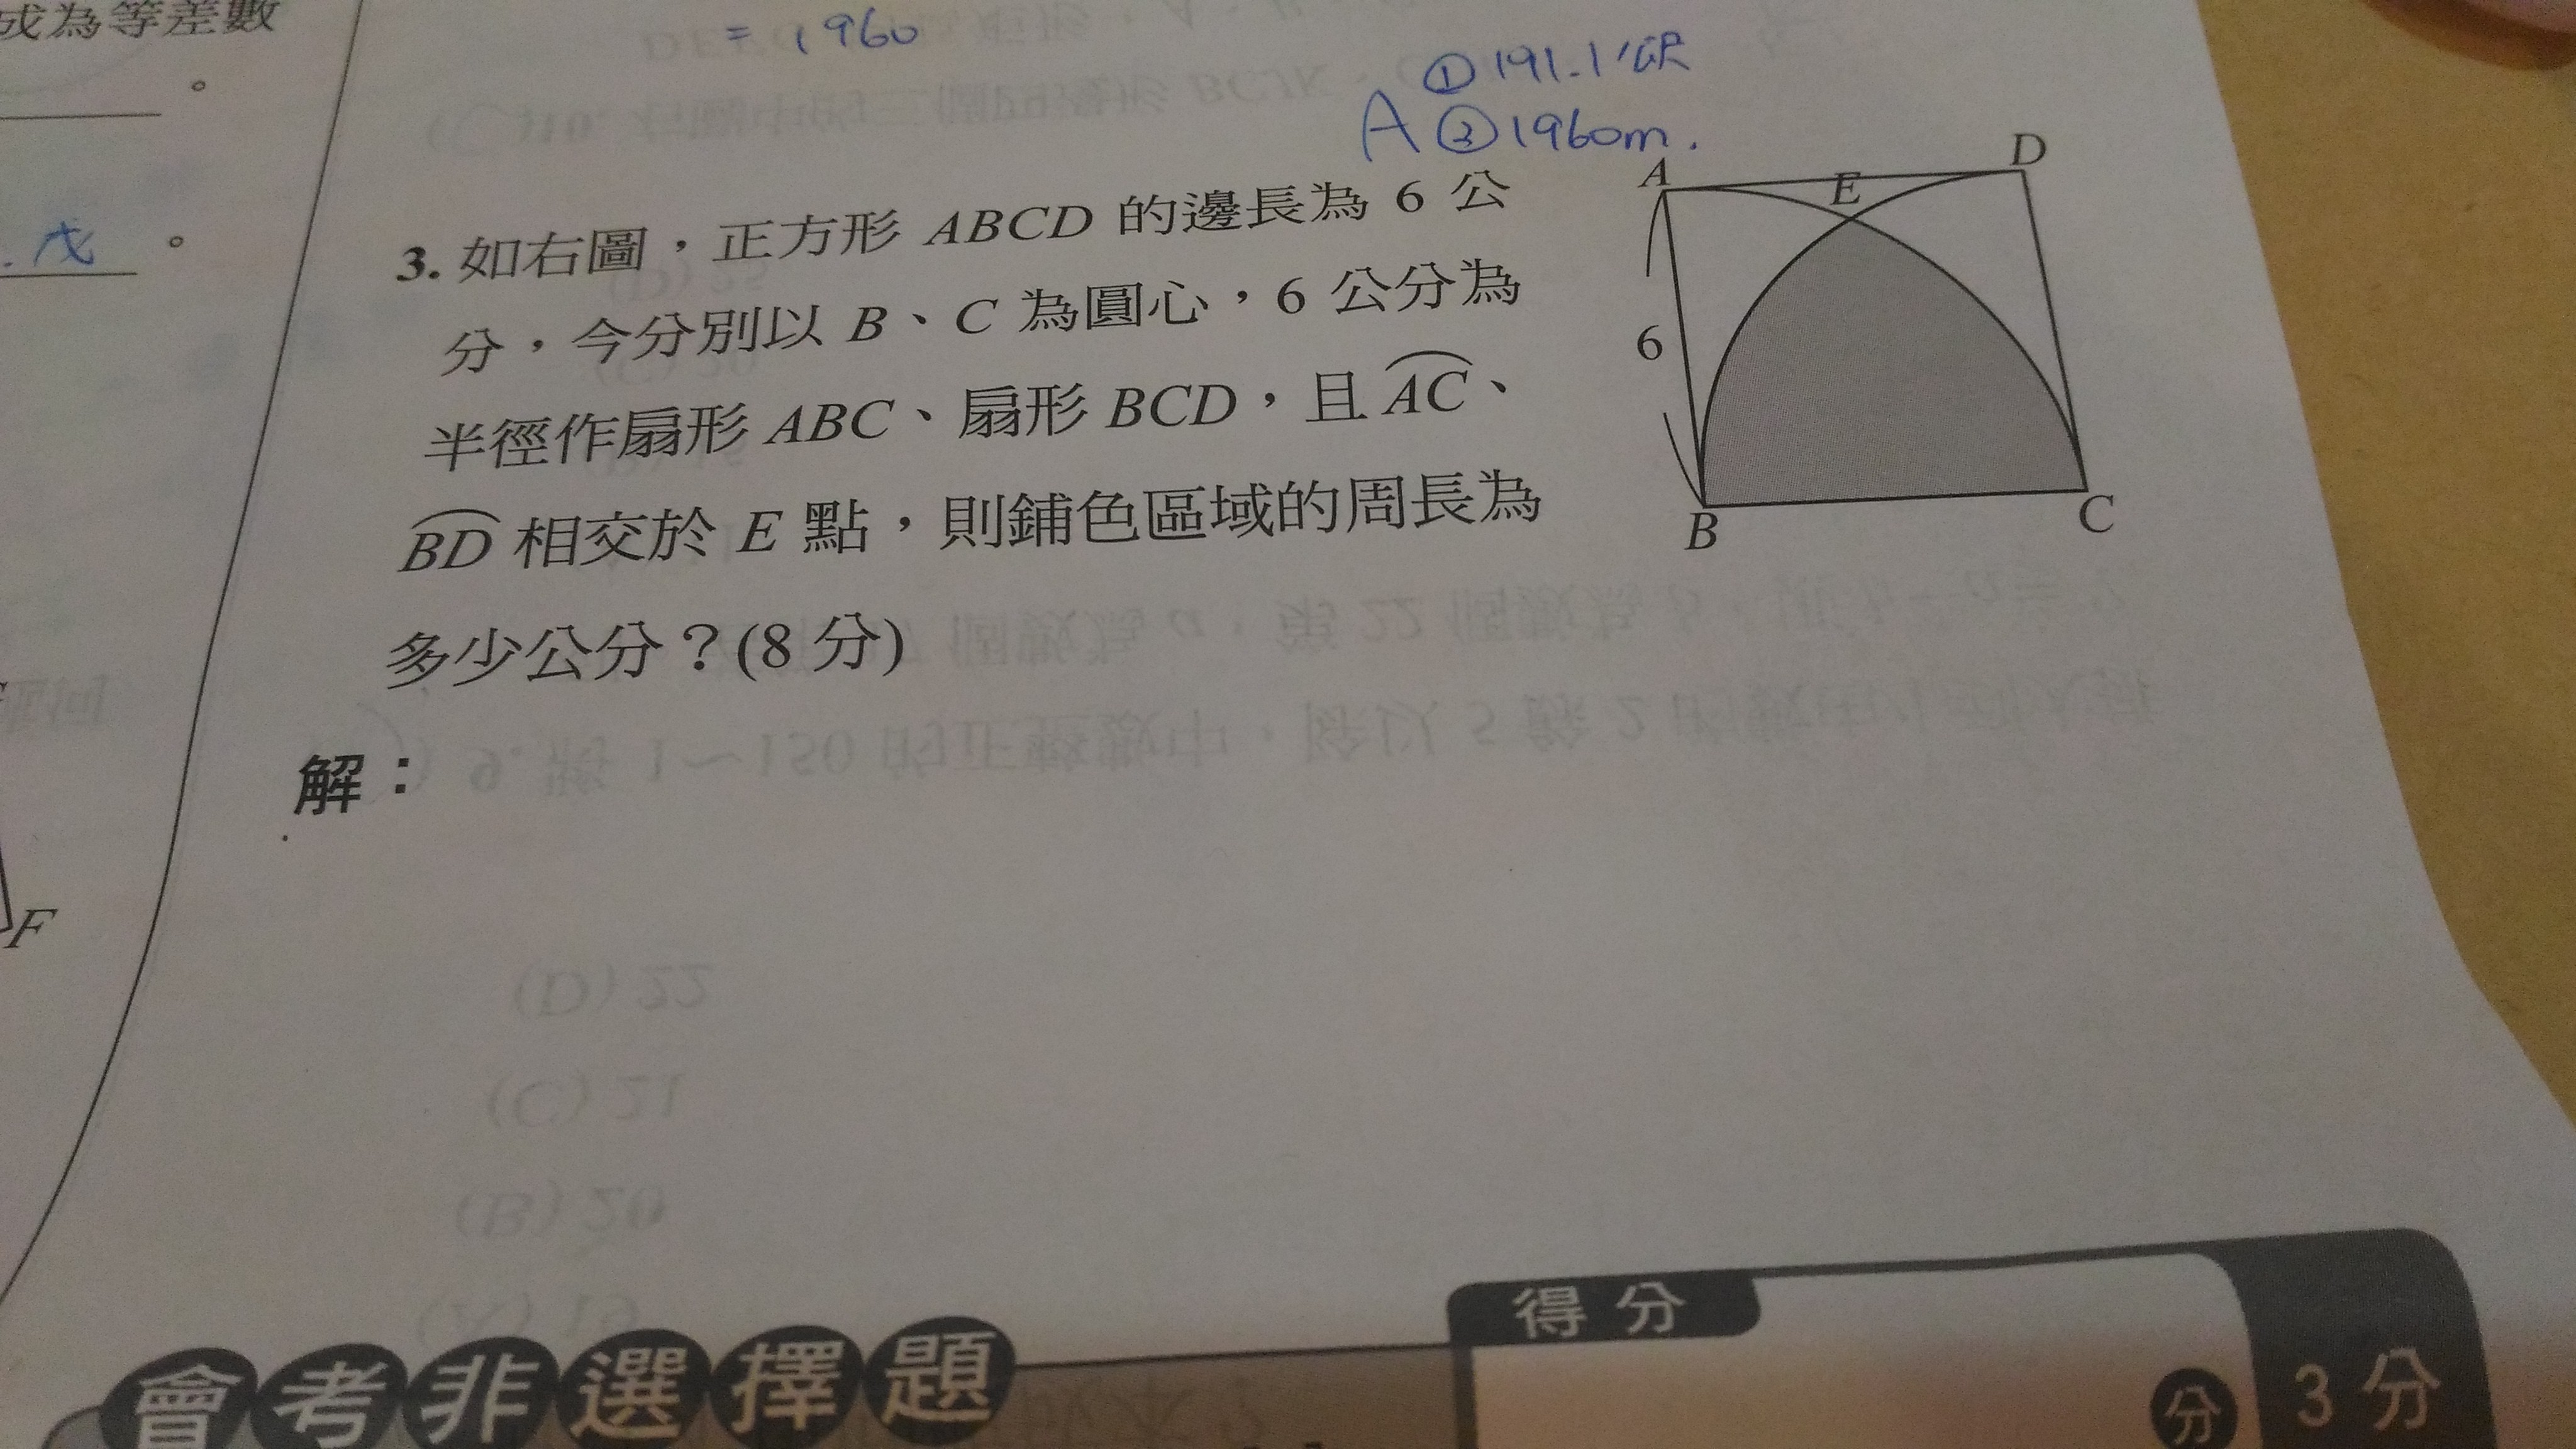 成為等差數
。
戊 。
= 1960
① 191.1公尺
A ② 1960m.
3. 如右圖，正方形 ABCD 的邊長為 6 公
分，今分別以 B、C 為圓心，6 公分為
半徑作扇形 ABC、扇形 BCD，且 AC、
BD 相交於 E 點，則鋪色區域的周長為
多少公分？(8 分)
A
E
D
6
B
C
解：
F
會考非選擇題
得分
分
3 分